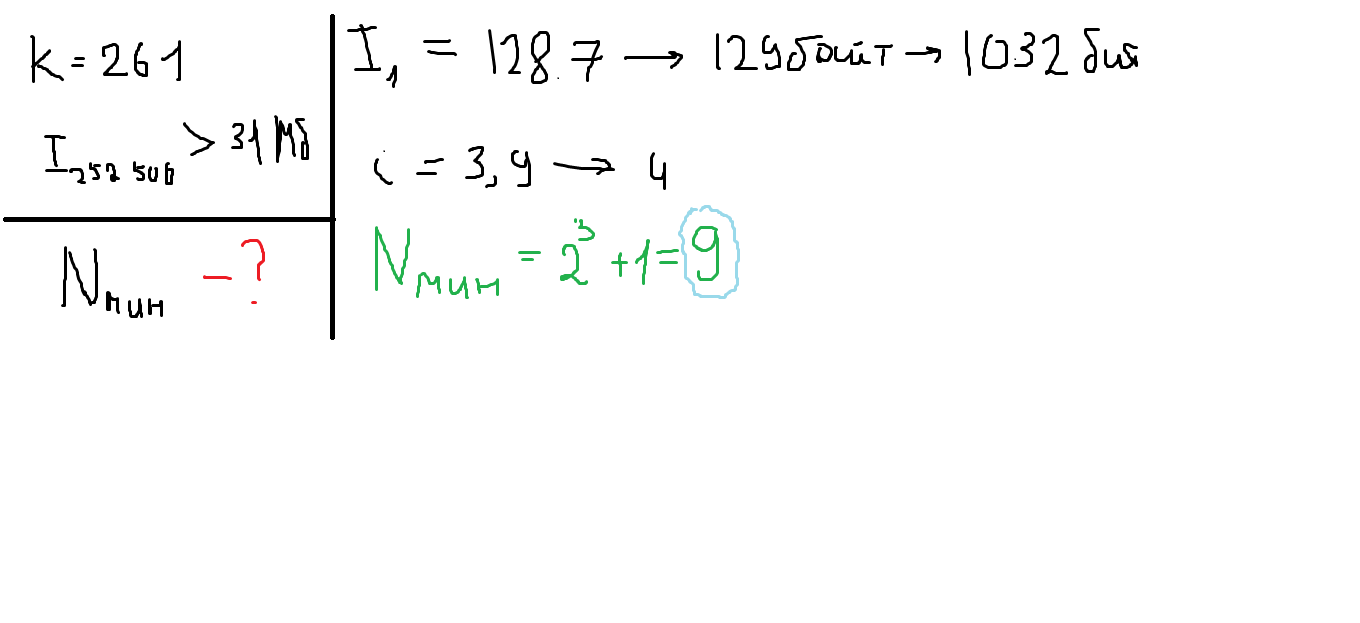 k = 261
I₂₅₂ ₅₀₆ > 31 Мб
Nмин - ?
I₁ = 128.7 → 129 байт → 1032 бит
i = 3,9 → 4
Nмин = 2³ + 1 = 9